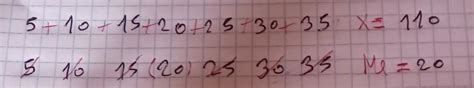 5+10+15+20+25+30+35 X= 110
5 10 15 (20) 25 30 35 Me = 20